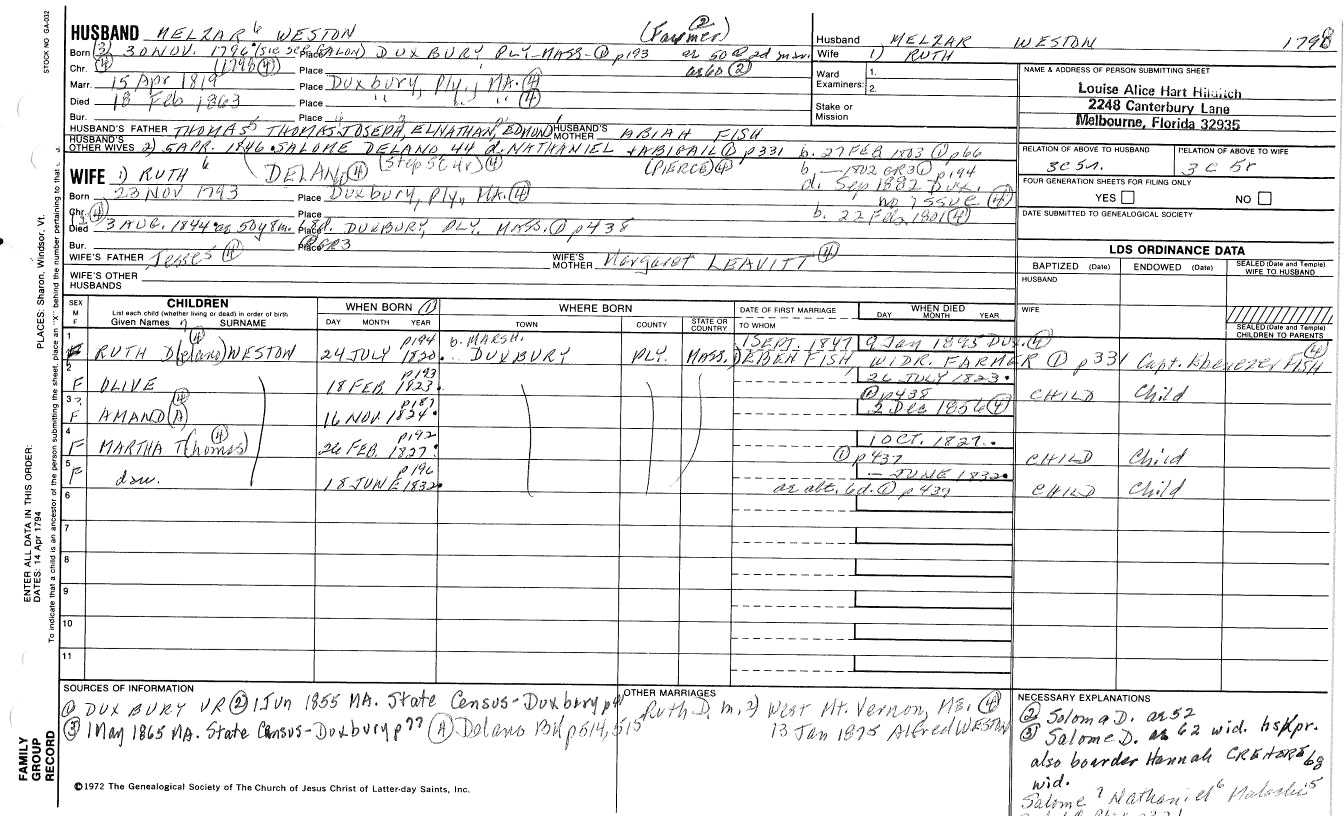 STOCK NO GA-032
HUSBAND MELZAR 6 WESTON (Farmer) ②
Born 30 NOV. 1796 (sic Place DUXBURY PLY MASS-① p193 as 50 @ 2d marr
③ ④ (1798 ④) as 60 ②
Chr. Place
Marr. 15 Apr 1819 Place Duxbury, Ply., MA. ④
Died 18 Feb 1863 Place " " " ④
Bur. Place
HUSBAND'S FATHER THOMAS 5 THOMAS, JOSEPH, ELNATHAN, EDMUND HUSBAND'S MOTHER ABIAH FISH
HUSBAND'S OTHER WIVES 2) 5 APR. 1846 SALOME DELANO 44 d. NATHANIEL + ABIGAIL ① p331 b. 27 FEB 1803 ① p66
(PIERCE) ④ b. — 1802 GR3 ① p194
WIFE 1) RUTH 6 DELANO ④ (Step Star) ④ d. Sep 1882 Dux.
Born 23 NOV 1793 Place Duxbury, Ply, MA. ④ no issue ④
b. 22 Feb 1801 ④
Chr. Place
Died 3 AUG. 1844 as 50y 8m. Place DUXBURY, PLY. MASS. ① p438
Bur. Place GR3
WIFE'S FATHER Jesse 5 ④ WIFE'S MOTHER Margaret LEAVITT ④
WIFE'S OTHER HUSBANDS
Husband MELZAR WESTON 1798
Wife 1) RUTH
Ward Examiners: 1.
2.
Stake or Mission
NAME & ADDRESS OF PERSON SUBMITTING SHEET
Louise Alice Hart Hildrich
2248 Canterbury Lane
Melbourne, Florida 32935
RELATION OF ABOVE TO HUSBAND RELATION OF ABOVE TO WIFE
3c5r. 3c5r
FOUR GENERATION SHEETS FOR FILING ONLY
YES NO
DATE SUBMITTED TO GENEALOGICAL SOCIETY
LDS ORDINANCE DATA
BAPTIZED (Date) ENDOWED (Date) SEALED (Date and Temple) WIFE TO HUSBAND
HUSBAND
WIFE
SEALED (Date and Temple) CHILDREN TO PARENTS
SEX M F CHILDREN WHEN BORN ① WHERE BORN DATE OF FIRST MARRIAGE WHEN DIED
List each child (whether living or dead) in order of birth
Given Names SURNAME DAY MONTH YEAR TOWN COUNTY STATE OR COUNTRY TO WHOM DAY MONTH YEAR
1 F RUTH D(elano) ④ WESTON 24 JULY 1820 p194 b. MARSH. DUXBURY PLY. MASS. 1 SEPT. 1847 9 Jan 1895 Dux. ④
EBEN FISH WIDR. FARMER ① p331 Capt. Ebenezer FISH ④
2 F OLIVE 18 FEB. 1823 p193 26 JULY 1823
① p438 CHILD Child
3 F AMAND(A) ④ 16 NOV. 1824 p187 2 Dec 1856 ④
4 F MARTHA T(homas) ④ 26 FEB. 1827 p192 1 OCT. 1827
① p437 CHILD Child
5 F dau. 18 JUNE 1832 p196 — JUNE 1832
as abt. 6d. ① p437 CHILD Child
6
7
8
9
10
11
SOURCES OF INFORMATION
① DUXBURY VR ② 1 Jun 1855 MA. State Census-Duxbury
③ 1 May 1865 MA. State Census-Duxbury p?? ④ Delano BK p514, 515
©1972 The Genealogical Society of The Church of Jesus Christ of Latter-day Saints, Inc.
OTHER MARRIAGES
Ruth D. m. 2) West Mt. Vernon, ME. ④
13 Jan 1875 Alfred WESTON
NECESSARY EXPLANATIONS
② Saloma D. as 52
③ Salome D. as 62 wid. hskpr.
also boarder Hannah CREHORE 68
wid.
Salome 7 Nathaniel 6 Malachi 5
PLACES: Sharon, Windsor, Vt.
ENTER ALL DATA IN THIS ORDER:
DATES: 14 Apr 1794
To indicate that a child is an ancestor of the person submitting the sheet, place an "X" behind the number pertaining to that
FAMILY GROUP RECORD